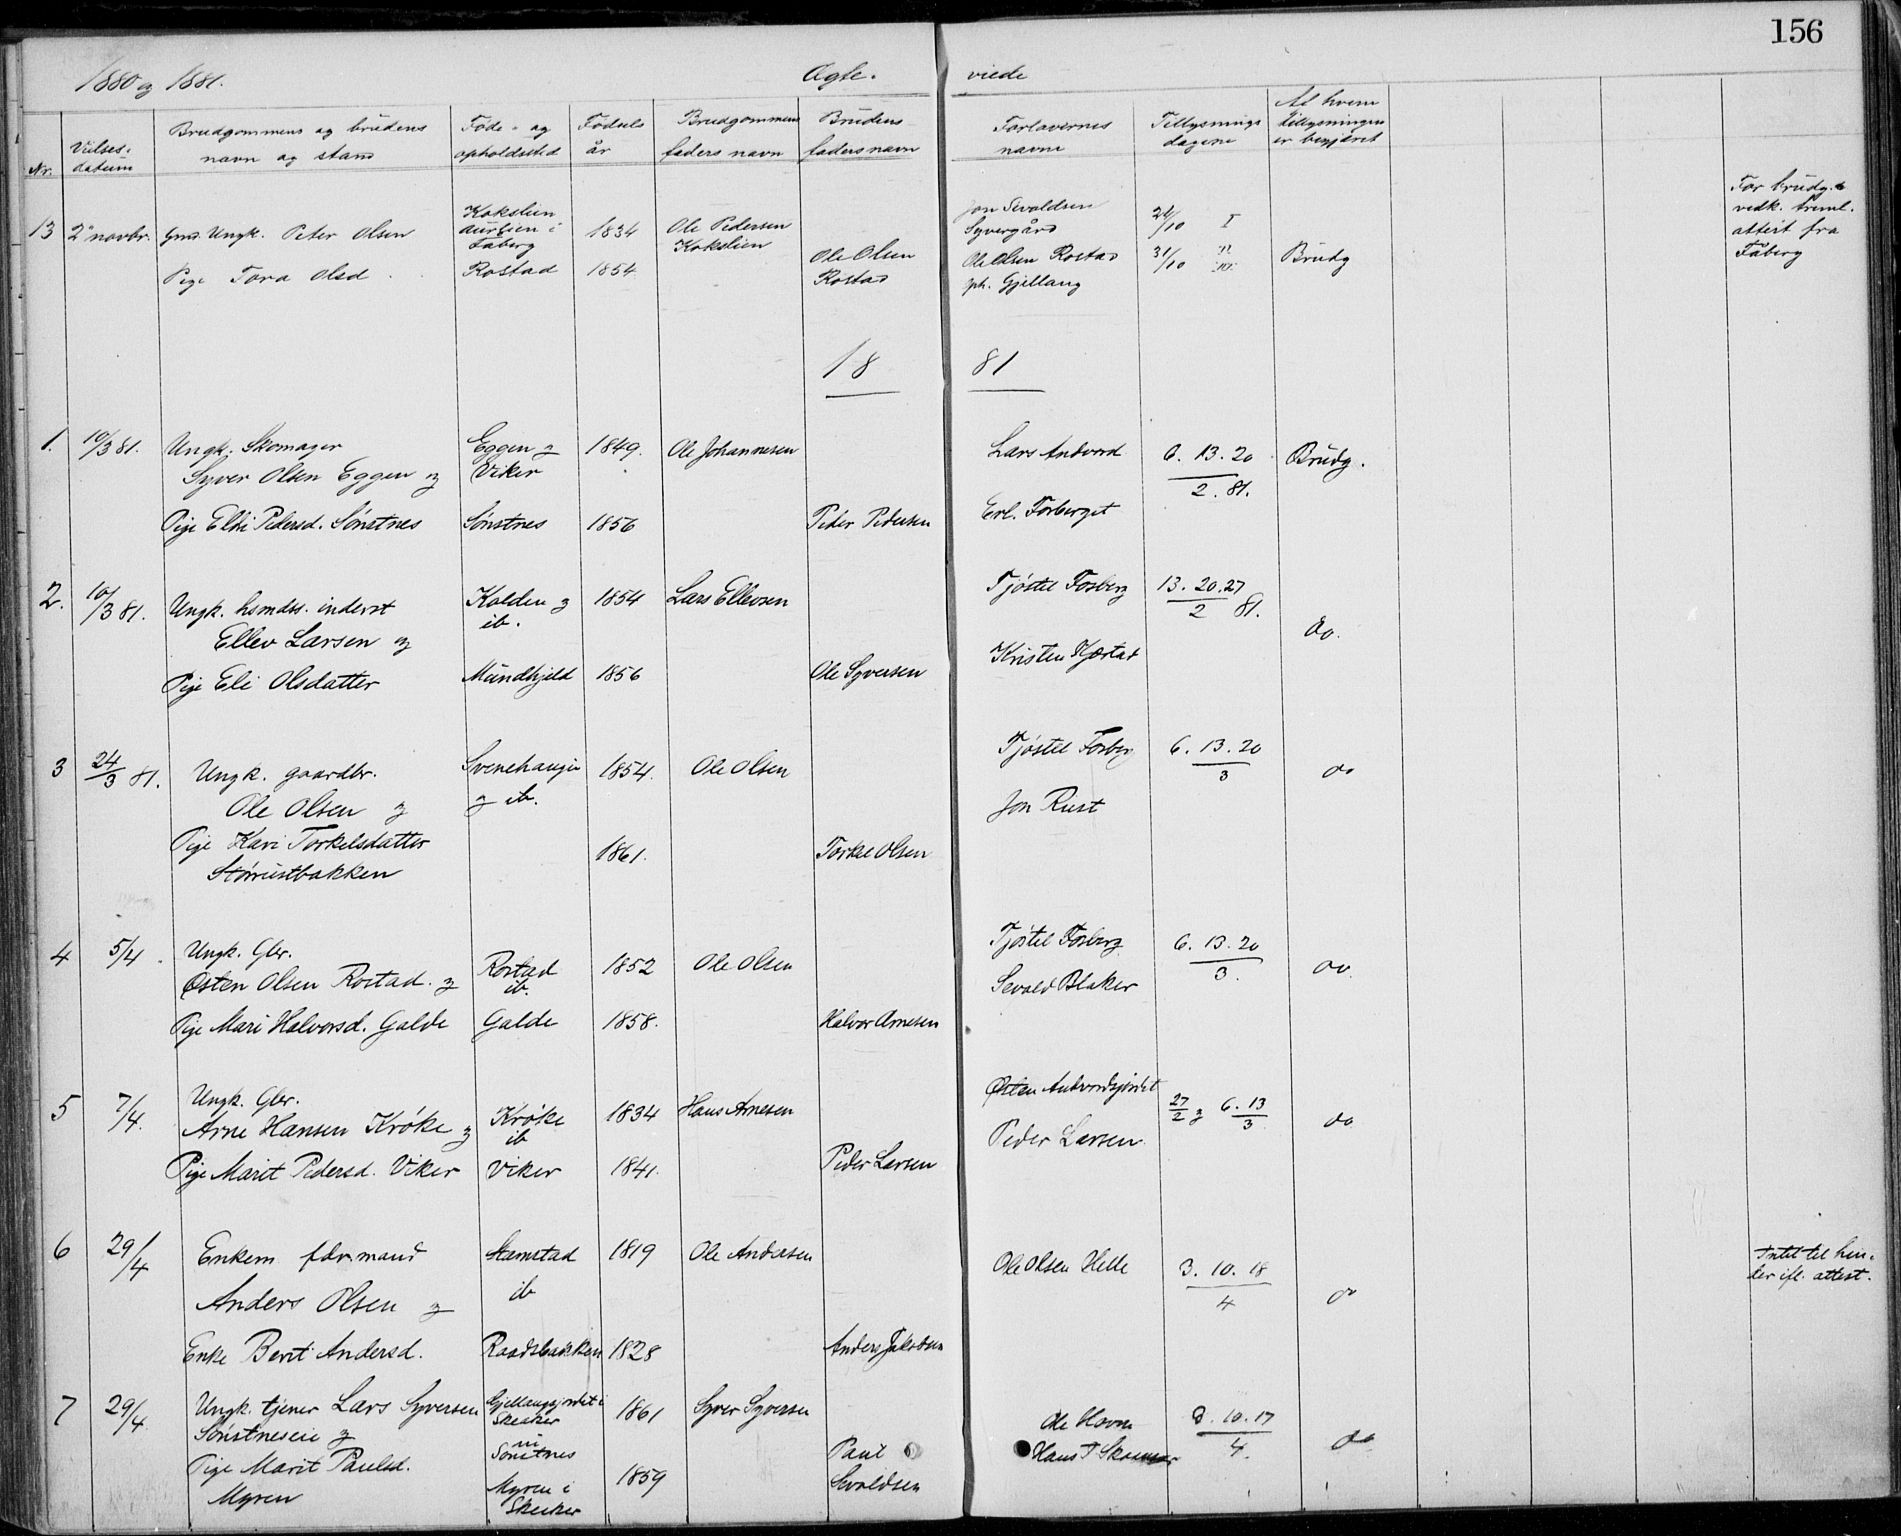 156
1880 og 1881.
Ægte.
viede
Nr.
Vielses-
datum
Brudgommens og brudens
navn og stand
Føde- og
opholdssted
Fødsels
år
Brudgommens
faders navn
Brudens
faders navn
Forlovernes
navne
Tillysnings
dagene
Af hvem
tillysningen
er begjæret
13
2' novbr.
Ungk. Peter Olsen
Kokslien
i
Faberg
1834
Ole Pedersen
Kokslien
Jon Sevaldsen
Syvergård
24/10 I
For brudg.s
vedk. freml.
attest fra
Faberg
Pige Tora Olsd.
Rostad
1854
Ole Olsen
Rostad
Ole Olsen Rostad
ph. Gjellang
31/10
Brudg
18
81
1.
10/3 81.
Ungk. Skomager
Syver Olsen Eggen og
Eggen og
Viker
1849.
Ole Johannesen
Lars Andvord
6. 13. 20
2. 81.
Brudg.
Pige Eldri Pedersd. Sønstnes
Sønstnes
1856
Peder Pedersen
Erl. Forberget
2.
10/3 81.
Ungk. hsmds. inderst
Ellev Larsen og
Kolden og
ib.
1854
Lars Ellevsen
Tjøstel Fosberg
13. 20. 27
2 81.
do.
Pige Eli Olsdatter
Mundhjeld
1856
Ole Syversen
Kristen Kjæstad
3
24/3 81.
Ungk. gaardbr.
Ole Olsen og
Svenehaugen
og ib.
1854.
Ole Olsen
Tjøstel Fosberg
6. 13. 20
3
do
Pige Kari Torkelsdatter
Størrustbakken
1861.
Torkel Olsen
Jon Rust
4
5/4.
Ungk. Gbr.
Østen Olsen Rostad. og
Rostad
ib.
1852
Ole Olsen
Tjøstel Fosberg
6. 13. 20
3.
do.
Pige Mari Halvorsd. Galde
Galde
1858.
Halvor Arnesen
Sevald Blaker
5
7/4.
Ungk. Gbr.
Arne Hansen Krøke og
Krøke
ib
1834
Hans Arnesen
Østen Andvordgjordet
27/2 og 6. 13
3
do
Pige Marit Pedersd. Viker
Viker
1841.
Peder Larsen
Peder Larsen
6
29/4
Enkem. før.mand
Anders Olsen og
Stamstad
ib
1819
Ole Andersen
Ole Olsen Helle
3. 10. 18
4
do
Intet til hin-
der ifl. attest.
Enke Berit Andersd.
Raadsbakken
1828
Anders Jakobsen
7
29/4
Ungk. tjener Lars Syversen
Sønstneseie og
Gjellangjordet i
Skeaker
ni
Sønstnes
1861
Syver Syversen
Ole Hovne
10. 17
4.
do
Pige Marit Paulsd.
Myren
Myren i
Skeaker
1859
Paul
Sevaldsen
Hans T